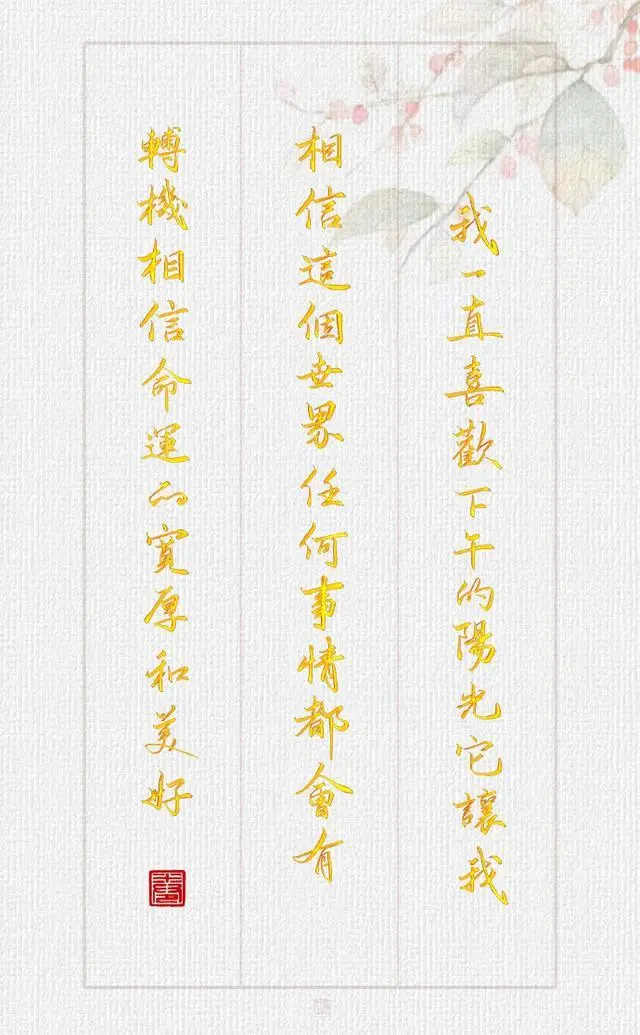 我一直喜歡下午的陽光它讓我
相信這個世界任何事情都會有
轉機相信命運的寬厚和美好